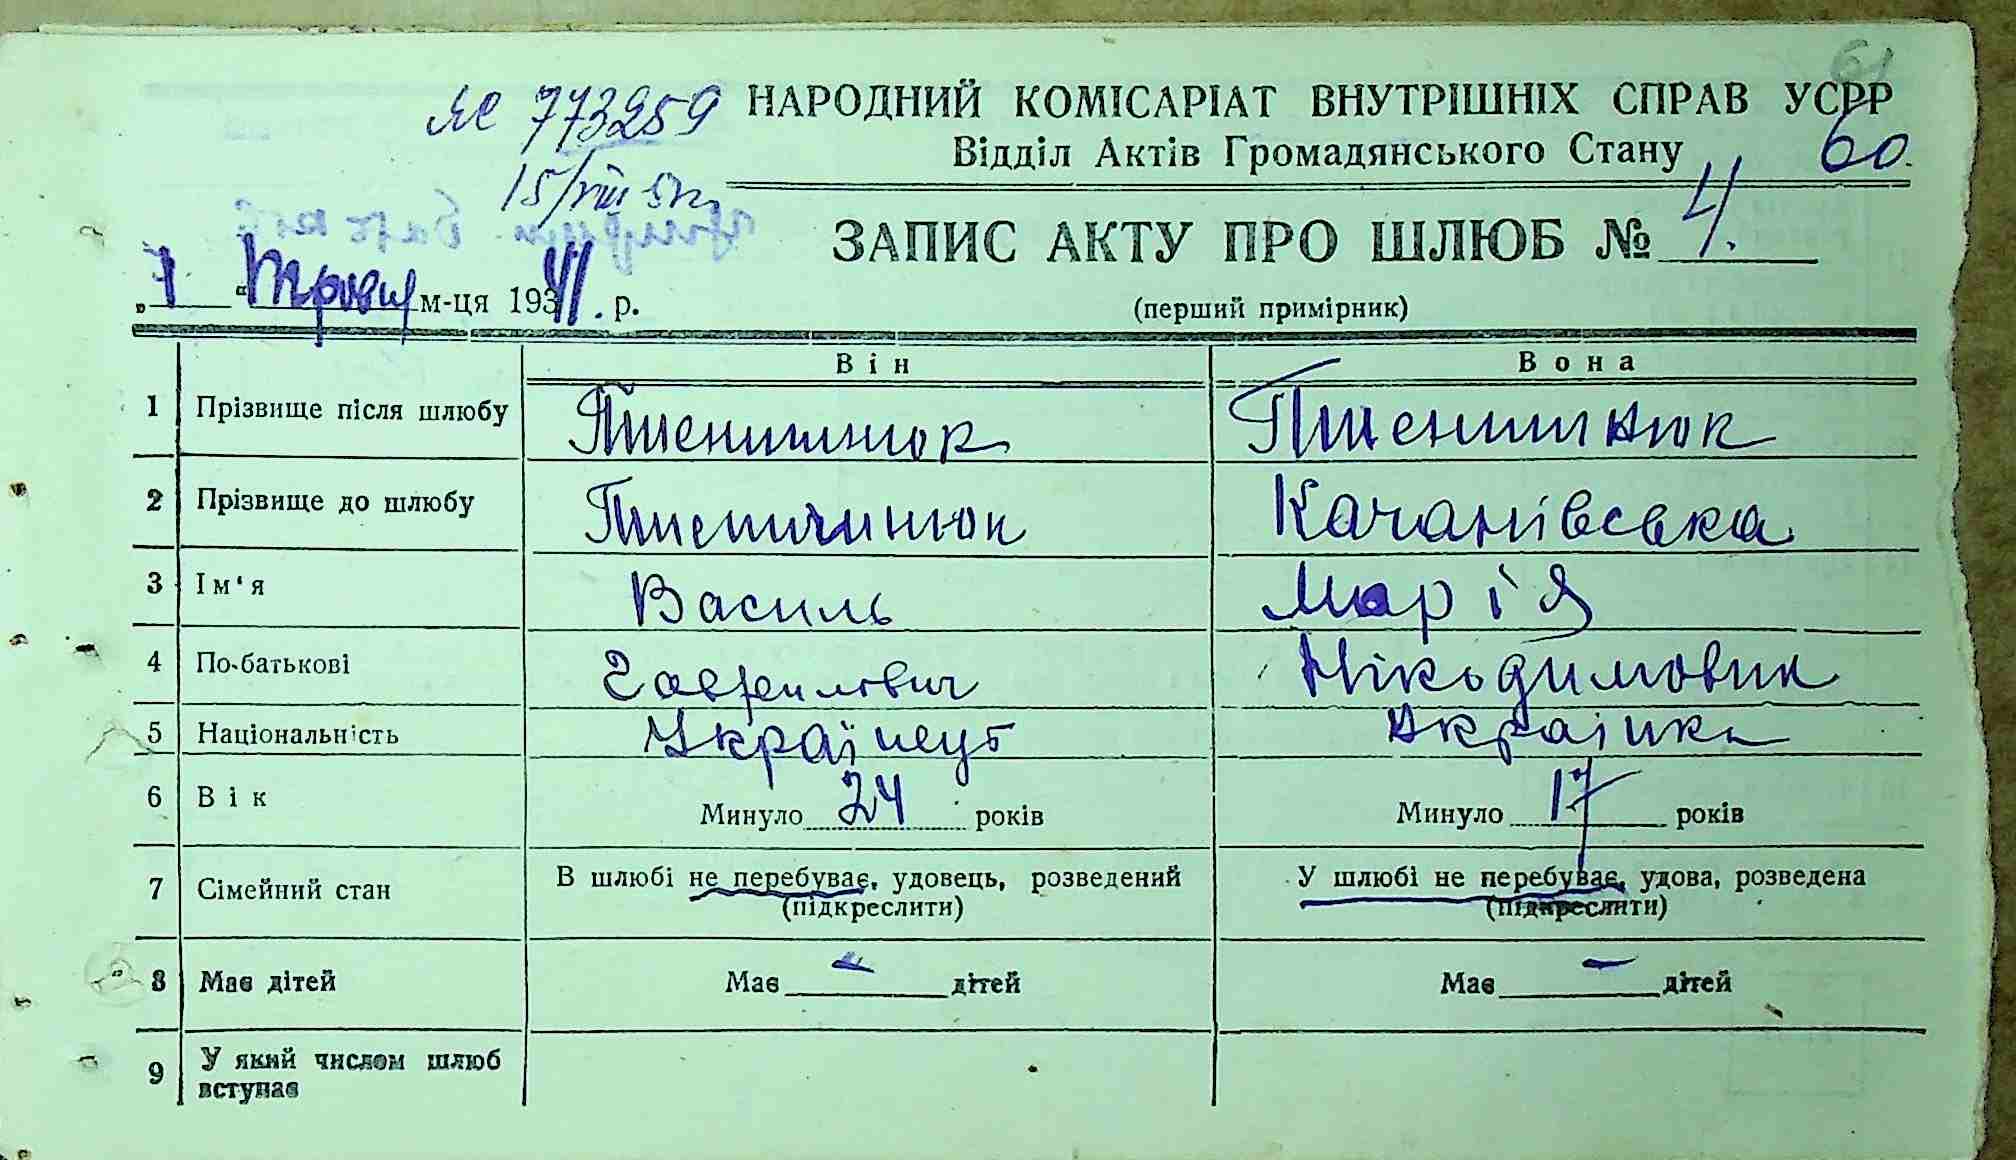 61
№ 773259 НАРОДНИЙ КОМІСАРІАТ ВНУТРІШНІХ СПРАВ УСРР
Відділ Актів Громадянського Стану 60.
15/VIII
ЗАПИС АКТУ ПРО ШЛЮБ № 4.
„ “ Травня м-ця 1941. р. (перший примірник)
Він Вона
1 Прізвище після шлюбу Пшенишнюк Пшенишнюк
2 Прізвище до шлюбу Качанівська
3 Ім'я Василь Марія
4 По-батькові Гаврилович Нікодимовна
5 Національність Українець Українка
6 Вік Минуло 24 років Минуло 17 років
7 Сімейний стан В шлюбі не перебуває, удовець, розведений У шлюбі не перебуває, удова, розведена
(підкреслити) (підкреслити)
8 Має дітей Має - дітей Має - дітей
9 У який числом шлюб
вступає